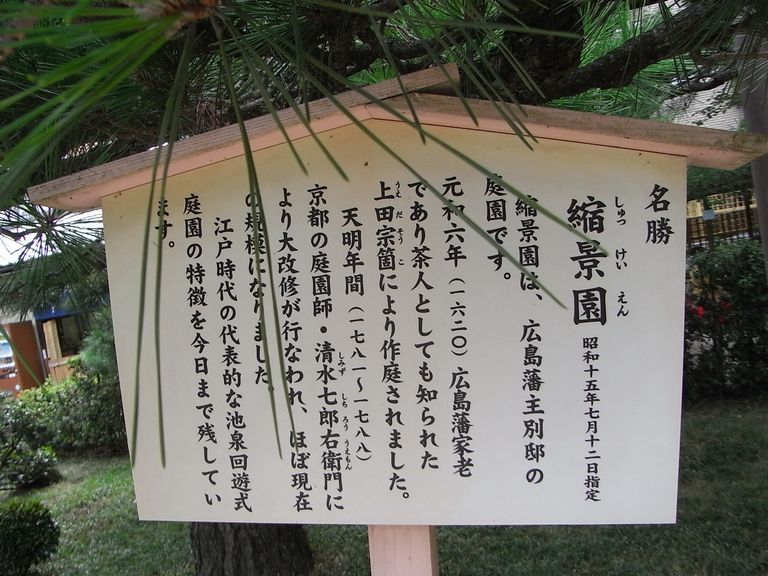 名勝
縮景園 昭和十五年七月十二日指定
しゅっ けい えん
縮景園は、広島藩主別邸の
庭園です。
元和六年（一六二〇）広島藩家老
であり茶人としても知られた
上田宗箇により作庭されました。
うえ だ そう こ
天明年間（一七八一～一七八八）
京都の庭園師・清水七郎右衛門に
しみず しち ろう うえもん
より大改修が行なわれ、ほぼ現在
の規模になりました。
江戸時代の代表的な池泉回遊式
庭園の特徴を今日まで残してい
ます。